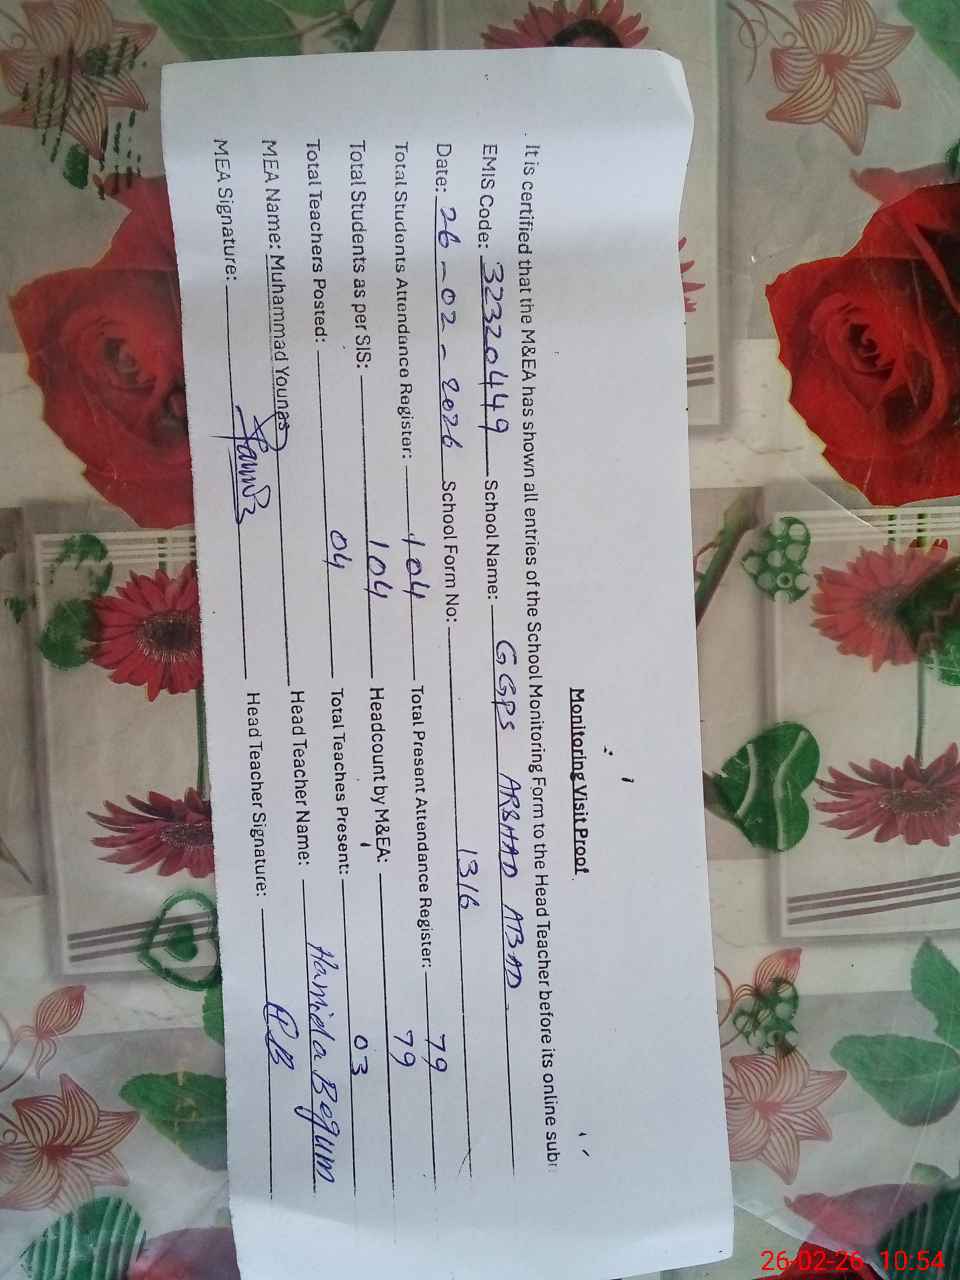 Monitoring Visit Proof
It is certified that the M&EA has shown all entries of the School Monitoring Form to the Head Teacher before its online
EMIS Code: 32320449 School Name: GGPS ARSHAD ABAD
Date: 26-02-2026 School Form No: 1316
Total Students Attendance Register: 104 Total Present Attendance Register: 79
Total Students as per SIS: 104 Headcount by M&EA: 79
Total Teachers Posted: 04 Total Teaches Present: 03
MEA Name: Muhammad Younas Head Teacher Name: Hamida Begum
MEA Signature: Head Teacher Signature:
26-02-26 10:54